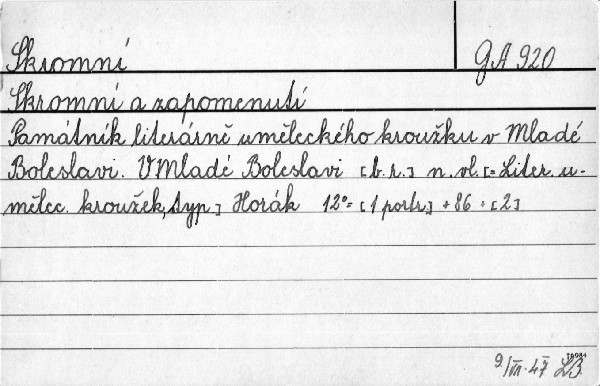 Skromní GA 920
Skromní a zapomenutí
Památník literárně uměleckého kroužku v Mladé
Boleslavi. V Mladé Boleslavi [b.r.] n. vl. [= Liter. u-
mělec. kroužek, typ.] Horák 12° = [1 portr.] + 86 + [2]
9/VII. 47 LB.